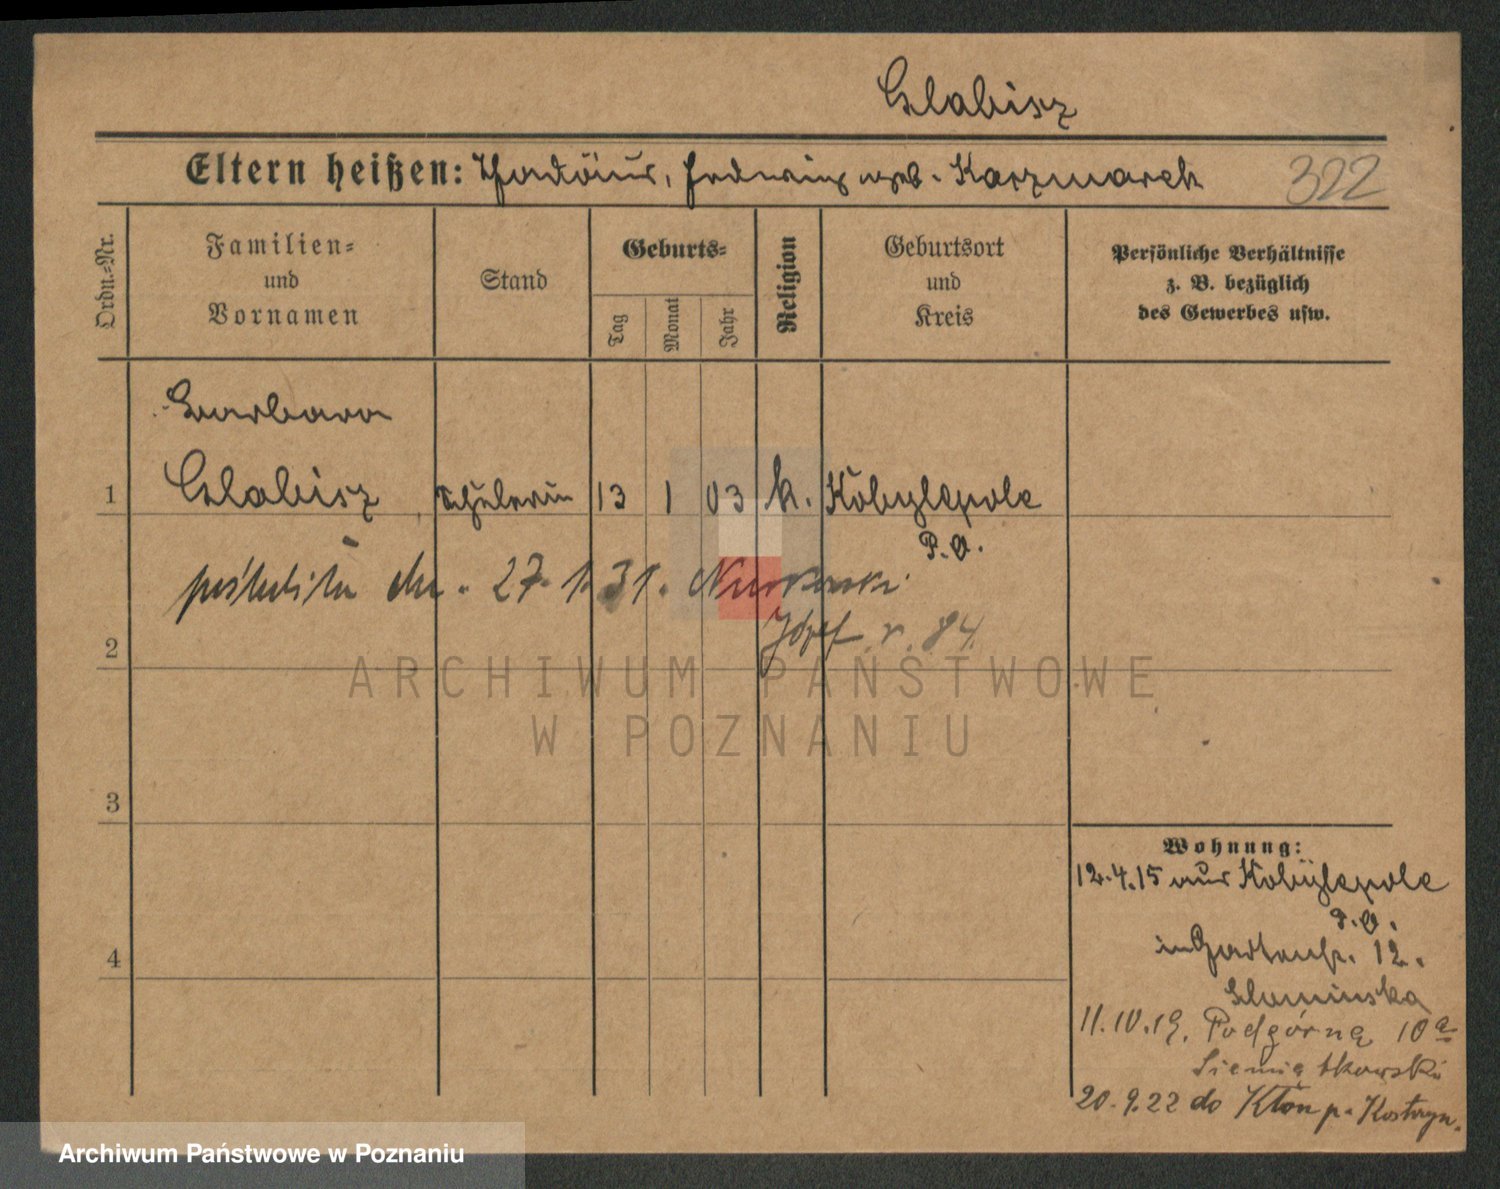 Glabisz
Eltern heißen: Thadäus, Hedwig geb. Kaczmarek 322
Ordn.=Nr.
Familien=
und
Vornamen
Stand
Geburts=
Tag
Monat
Jahr
Religion
Geburtsort
und
Kreis
Persönliche Verhältnisse
z. B. bezüglich
des Gewerbes usw.
Barbara
1 Glabisz Schülerin 13 1 03 k. Kobylepole
P. O.
27. 1. 31.
Józef r. 84
2
3
4
Wohnung:
12.4.15 aus Kobylepole
P. O.
in Gartenstr. 12.
11.10.19. Podgórna 10a
Siemiątkowski
20.9.22 do Kłon p. Kostrzyn.
ARCHIWUM PAŃSTWOWE
W POZNANIU
Archiwum Państwowe w Poznaniu